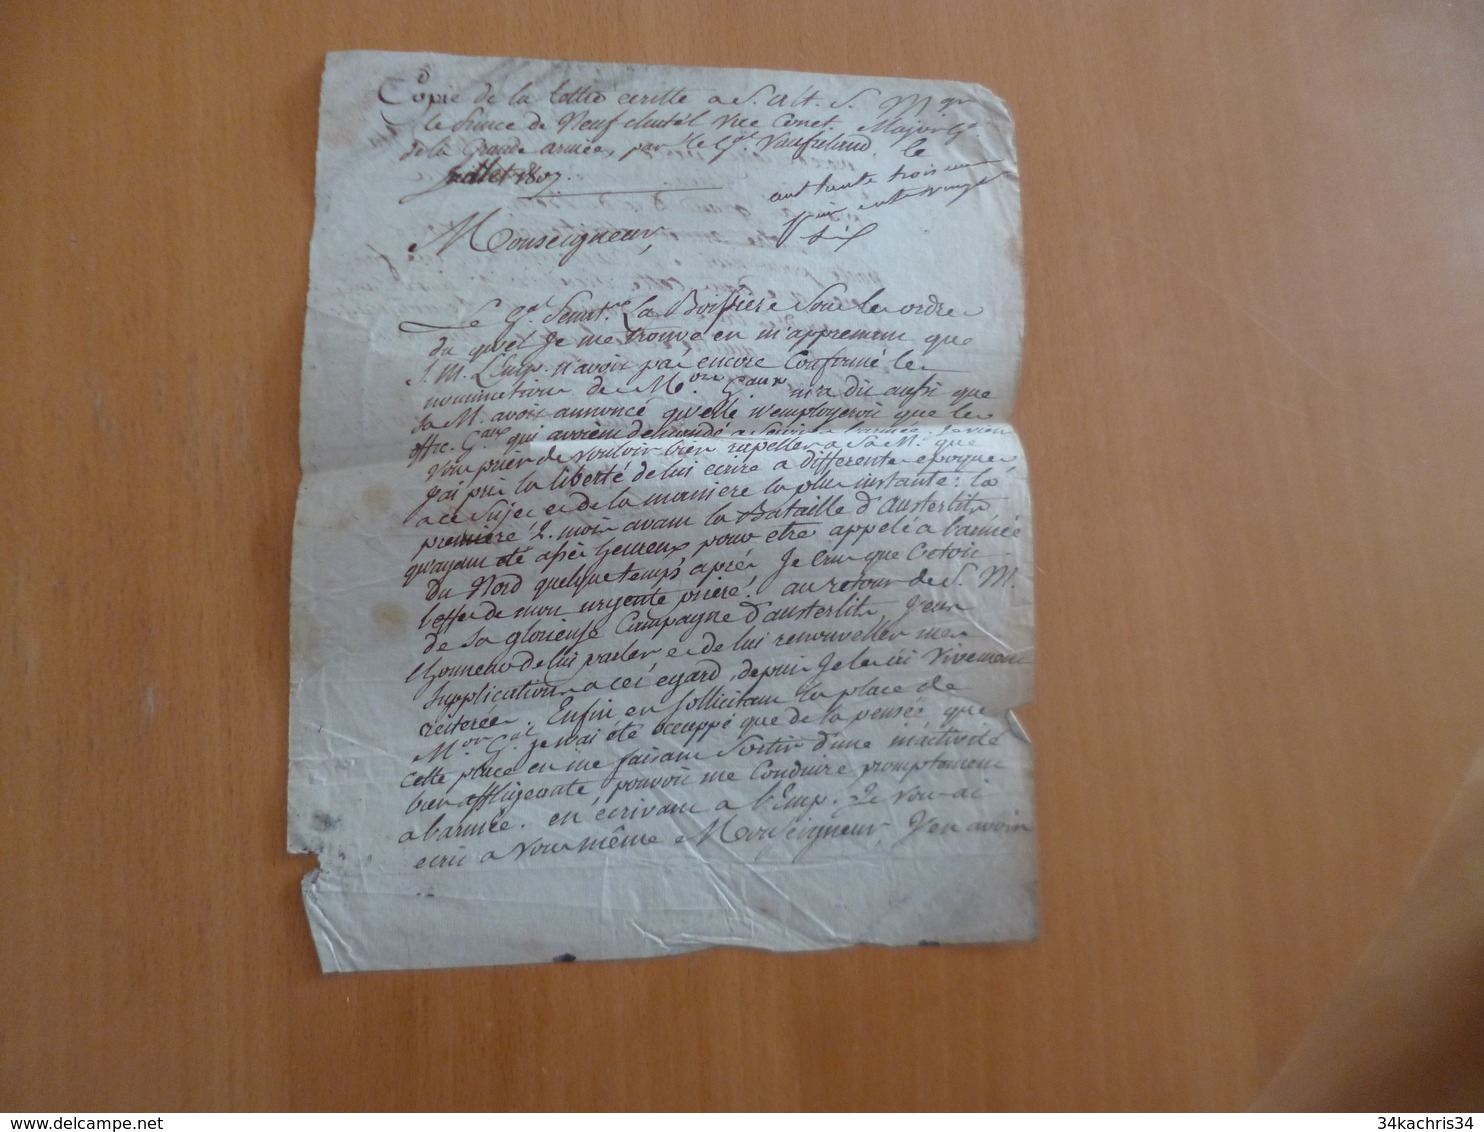 Copie de la lettre ecritte a S. Alt. S. Mgr
le Prince de Neufchatel Vice Conet. Major Gl
de la Grande armée, par le Gal Vaufreland le
Juillet 1807.
cent trente trois
quatre vingt
six
Monseigneur,
Le Gal Senatr. La Boissiere sous les ordres
du quel Je me trouve en m'apprenant que
S. M. L'Emp. n'avoit pas encore Confirmé les
nominations de Mors Gaux m'a dit aussi que
Sa M. avoit annoncé qu'elle n'employeroit que les
offic. Gaux qui avoient demandé a servir a l'armée. Je vien
vous prier de vouloir bien rapeller a Sa M. que
J'ai pris la liberté de lui ecrire a differentes epoques
a ce sujet et de la maniere la plus instante: la
premiere 2. mois avant la Bataille d'Austerlits
qu'ayant été assés heureux pour etre appelé a l'armée
du Nord quelque temps après Je crus que C'etoit
l'effet de mon urgente priere. au retour de S. M.
de sa glorieuse Campagne d'austerlits J'eus
l'honneur de lui parler et de lui renouveller mes
supplications a cet egard, depuis Je les ai vivement
réiterées. Enfin en sollicitant la place de
Mor Gal je n'ai été occuppé que de la pensée que
cette place en me faisant sortir d'une inactivité
bien affligeante pouvoit me Conduire promptement
a l'armée. en écrivant a l'Emp. Je vous ai
ecrit a vous même Monseigneur, J'en avois
34kachris34